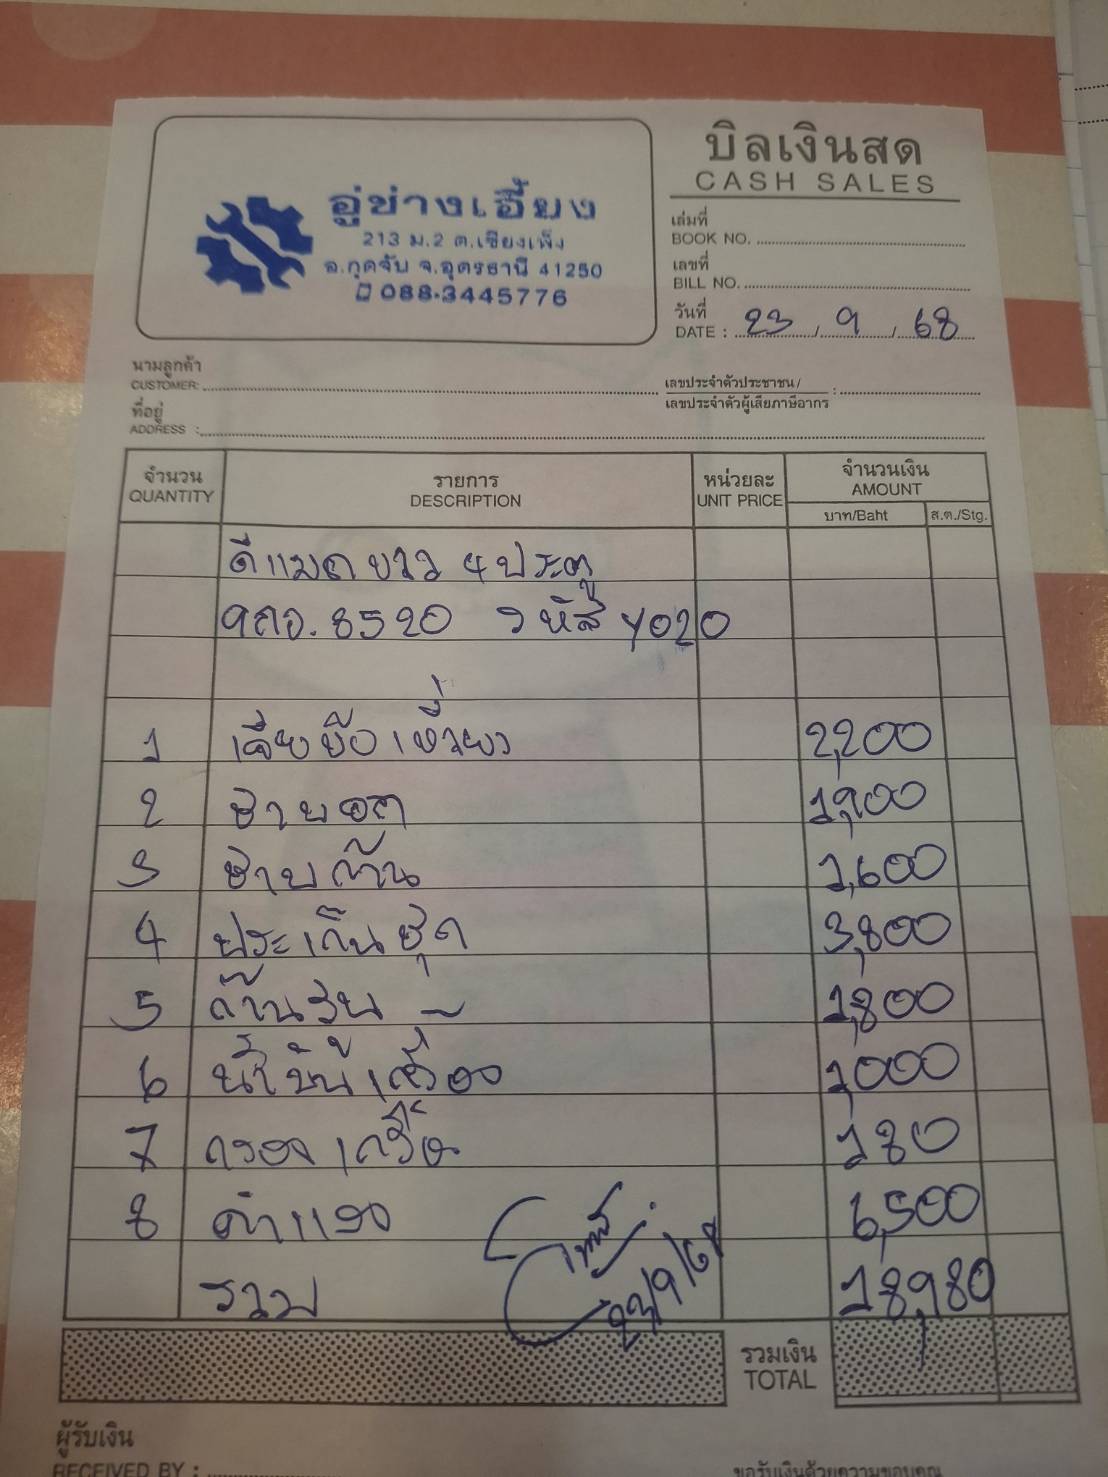 บิลเงินสด
CASH SALES
อู่ช่างเอี้ยง
213 ม.2 ต.เชียงเพ็ง
อ.กุดจับ จ.อุดรธานี 41250
088-3445776
เล่มที่
BOOK NO.
เลขที่
BILL NO.
วันที่
DATE : 23 / 9 / 68
นามลูกค้า
CUSTOMER:
เลขประจำตัวประชาชน/
เลขประจำตัวผู้เสียภาษีอากร :
ที่อยู่
ADDRESS :
จำนวน รายการ หน่วยละ จำนวนเงิน
QUANTITY DESCRIPTION UNIT PRICE AMOUNT
บาท/Baht ส.ต./Stg.
ดีแมคขาว 4 ประตู
8520 รหัส Y020
1 2,200
2 1,900
3 1,600
4 ประเก็นชุด 3,800
5 1,800
6 น้ำมันเครื่อง 1,000
7 กรองเครื่อง 180
8 ค่าแรง 6,500
รวม 18,980
23/9/68
รวมเงิน
TOTAL
ผู้รับเงิน
RECEIVED BY :
ขอรับเงินด้วยความขอบคุณ